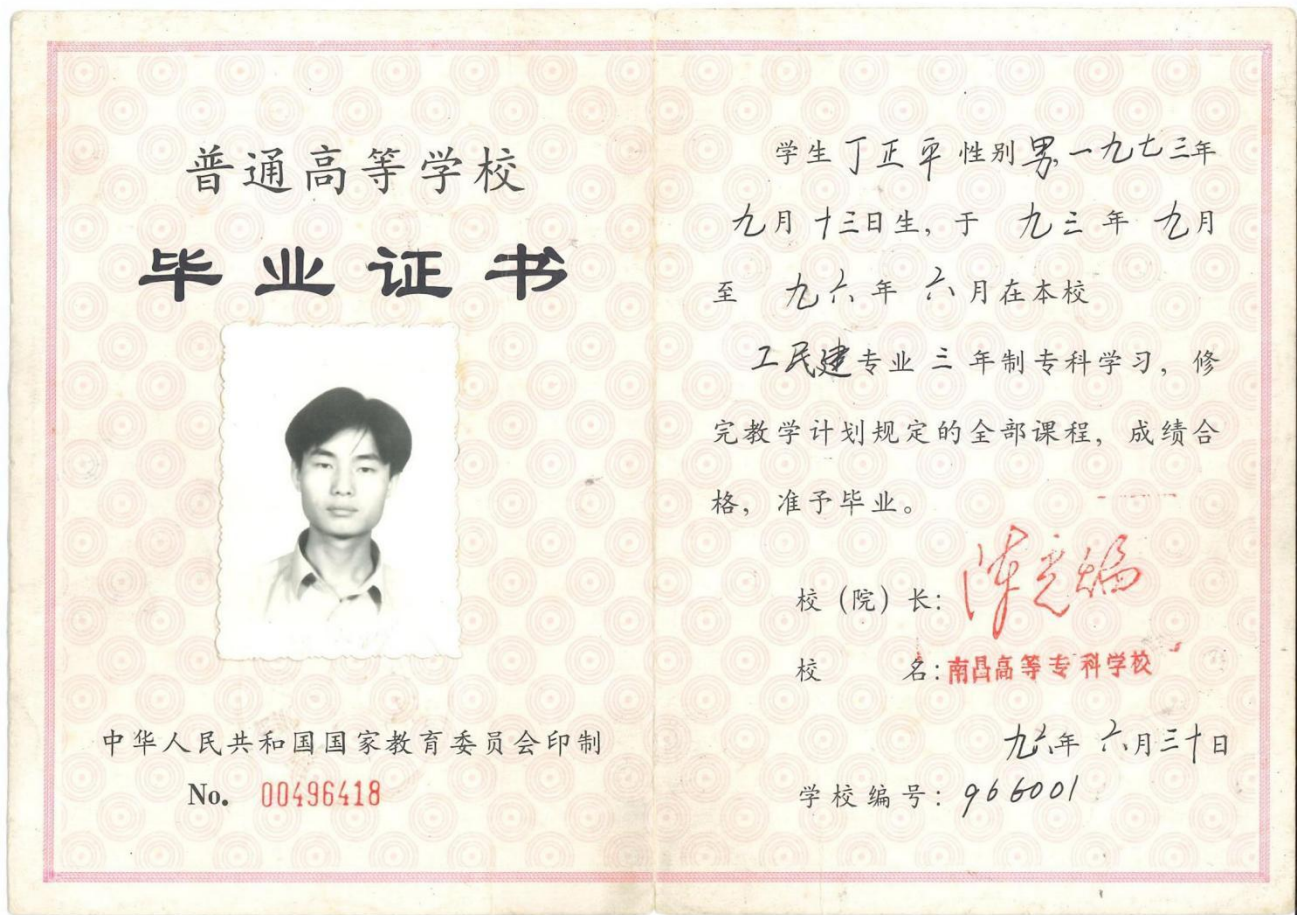 普通高等学校
毕业证书
中华人民共和国国家教育委员会印制
No. 00496418
学生丁正平性别男,一九七三年
九月十三日生,于 九三年 九月
至 九六年 六月在本校
工民建专业 三 年制专科学习,修
完教学计划规定的全部课程,成绩合
格,准予毕业。
校(院)长:
校 名:南昌高等专科学校
九六年 六月三十日
学校编号:966001